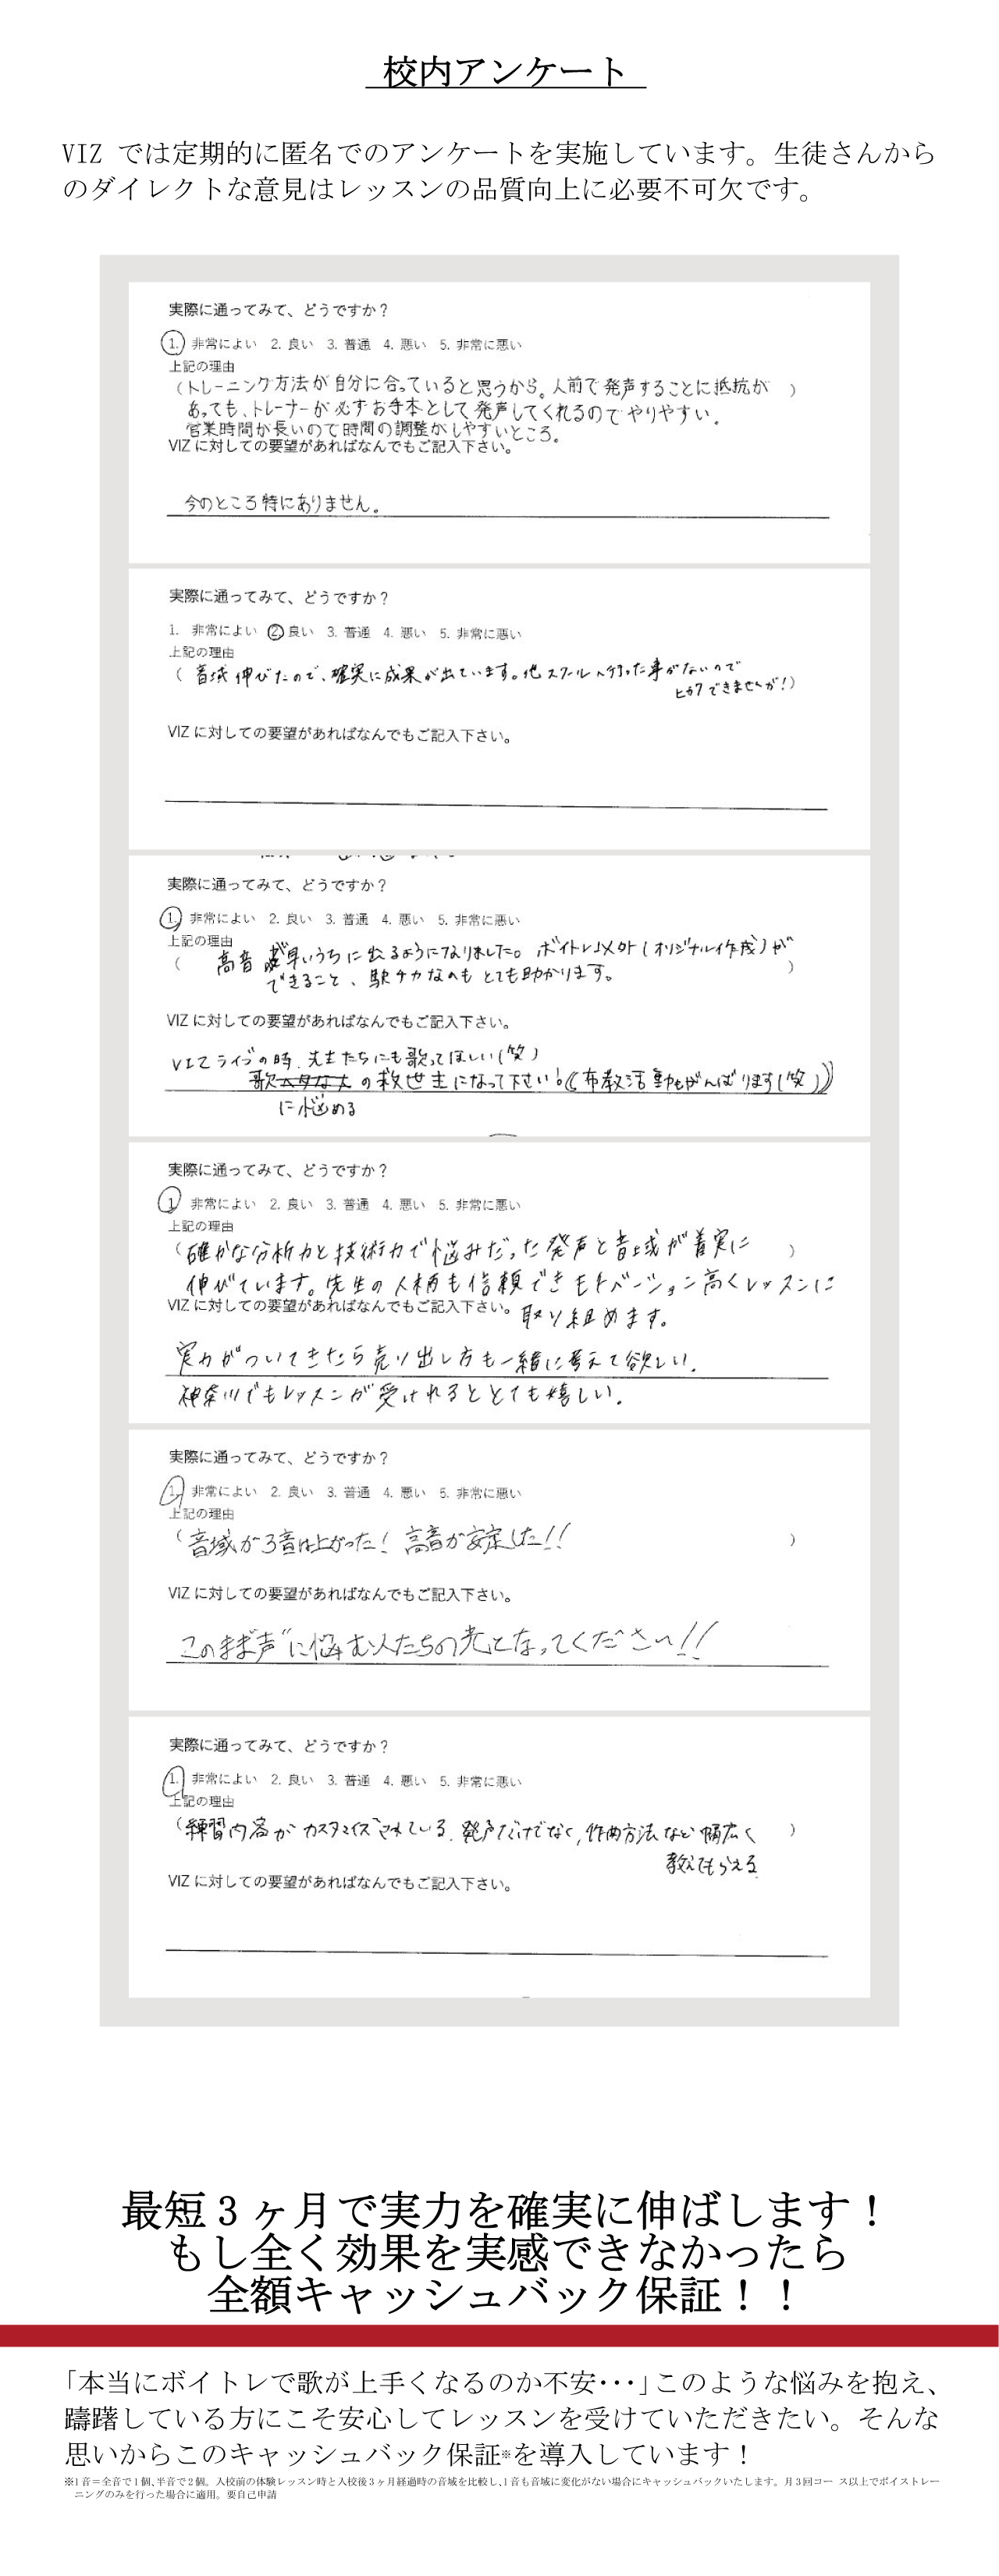 校内アンケート
VIZ では定期的に匿名でのアンケートを実施しています。生徒さんから
のダイレクトな意見はレッスンの品質向上に必要不可欠です。
実際に通ってみて、どうですか？
1. 非常によい 2. 良い 3. 普通 4. 悪い 5. 非常に悪い
上記の理由
（トレーニング方法が自分に合っていると思うから。人前で発声することに抵抗が）
あっても、トレーナーが必ずお手本として発声してくれるのでやりやすい。
営業時間が長いので時間の調整がしやすいところ。
VIZ に対しての要望があればなんでもご記入下さい。
今のところ特にありません。
実際に通ってみて、どうですか？
1. 非常によい 2. 良い 3. 普通 4. 悪い 5. 非常に悪い
上記の理由
（音域伸びたので、確実に成果が出ています。他スクールへ行った事がないので
ヒカクできませんが！）
VIZ に対しての要望があればなんでもご記入下さい。
実際に通ってみて、どうですか？
1. 非常によい 2. 良い 3. 普通 4. 悪い 5. 非常に悪い
上記の理由
（高音が早いうちに出るようになりました。ボイトレ以外（オリジナル作成）が
できること、駅チカなのもとても助かります。）
VIZ に対しての要望があればなんでもご記入下さい。
VIZライブの時、先生たちにも歌ってほしい（笑）
歌の救世主になって下さい！《布教活動もがんばります（笑）》
に悩める
実際に通ってみて、どうですか？
1. 非常によい 2. 良い 3. 普通 4. 悪い 5. 非常に悪い
上記の理由
（確かな分析力と技術力で悩みだった発声と音域が着実に）
伸びています。先生の人柄も信頼できモチベーション高くレッスンに
VIZ に対しての要望があればなんでもご記入下さい。取り組めます。
実力がついてきたら売り出し方も一緒に考えて欲しい。
神奈川でもレッスンが受けれるととても嬉しい。
実際に通ってみて、どうですか？
1. 非常によい 2. 良い 3. 普通 4. 悪い 5. 非常に悪い
上記の理由
（音域が3音は上がった！高音が安定した!!）
VIZ に対しての要望があればなんでもご記入下さい。
このまま“声”に悩む人たちの光となってください!!
実際に通ってみて、どうですか？
1. 非常によい 2. 良い 3. 普通 4. 悪い 5. 非常に悪い
上記の理由
（練習内容がカスタマイズされている。発声だけでなく，作曲方法など幅広く）
教えてもらえる
VIZ に対しての要望があればなんでもご記入下さい。
最短３ヶ月で実力を確実に伸ばします！
もし全く効果を実感できなかったら
全額キャッシュバック保証！！
「本当にボイトレで歌が上手くなるのか不安･･･」このような悩みを抱え、
躊躇している方にこそ安心してレッスンを受けていただきたい。そんな
思いからこのキャッシュバック保証※を導入しています！
※1音＝全音で1個、半音で2個。入校前の体験レッスン時と入校後3ヶ月経過時の音域を比較し、1音も音域に変化がない場合にキャッシュバックいたします。月3回コース以上でボイストレー
ニングのみを行った場合に適用。要自己申請